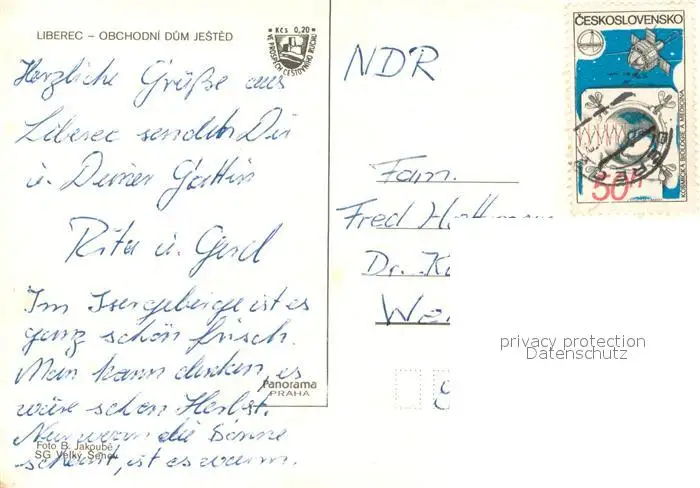 LIBEREC – OBCHODNÍ DŮM JEŠTĚD
Kčs 0,20
VE PROSPĚCH CESTOVNÍHO RUCHU
Herzliche Grüße aus
Liberec sendet Dir
u. Deiner Gattin
Rita u. Gerd
Im Isergebirge ist es
ganz schön frisch.
Man kann denken, es
wäre schon Herbst.
Nur wenn die Sonne
scheint, ist es warm.
Foto B. Jakoubě
SG Velký Šenov
Panorama
PRAHA
NDR
Fam.
Fred
Dr.
ČESKOSLOVENSKO
KOSMICKÁ BIOLOGIE A MEDICÍNA
50 H
privacy protection
Datenschutz